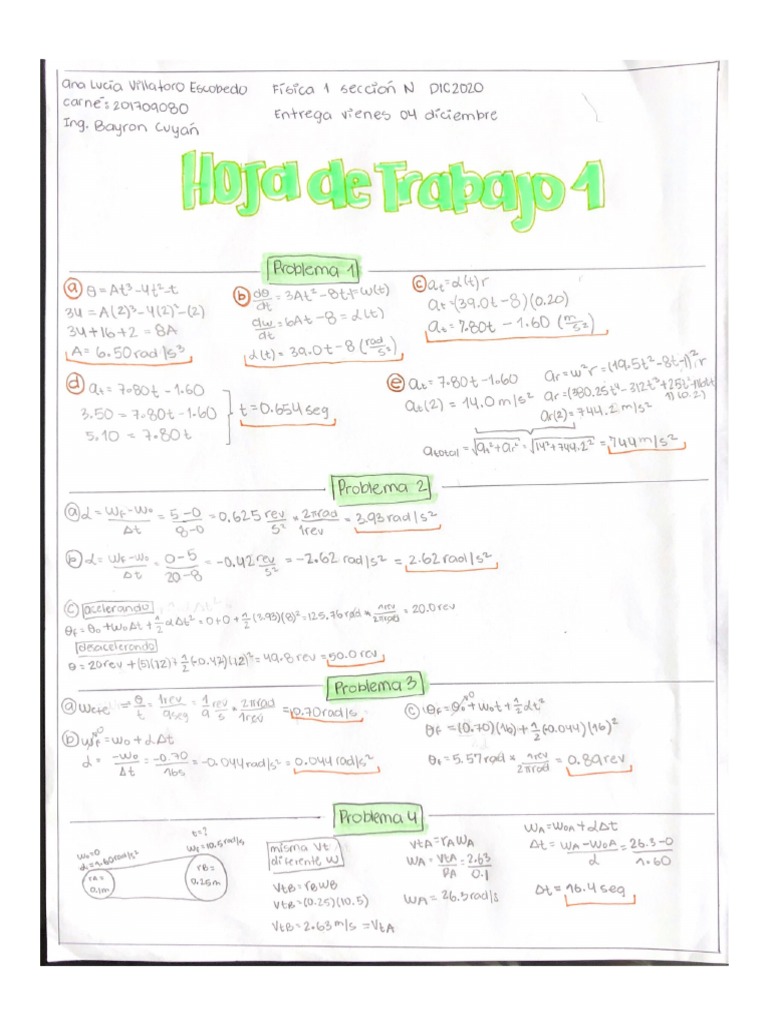 Ana Lucía Villatoro Escobedo Física 1 sección N DIC2020
carné: 201709080 Entrega vienes 04 diciembre
Ing. Bayron Cuyán
Hoja de Trabajo 1
Problema 1
a θ = At³-4t²-t
34 = A(2)³-4(2)²-(2)
34+16+2 = 8A
A = 6.50 rad/s³
b dθ/dt = 3At²-8t-1 = w(t)
dw/dt = 6At-8 = α(t)
α(t) = 39.0t-8 (rad/s²)
c at = α(t)r
at = (39.0t-8)(0.20)
at = 7.80t-1.60 (m/s²)
d at = 7.80t-1.60
3.50 = 7.80t-1.60
5.10 = 7.80t
t = 0.654 seg
e at = 7.80t-1.60
at(2) = 14.0 m/s²
ar = w²r = (19.5t²-8t-1)²r
ar(2) = 744.2 m/s²
atotal = √at²+ar² = √14²+744.2² = 744 m/s²
Problema 2
a α = wf-wo/Δt = 5-0/8-0 = 0.625 rev/s² * 2πrad/1rev = 3.93 rad/s²
b α = wf-wo/Δt = 0-5/20-8 = -0.42 rev/s² = -2.62 rad/s² = 2.62 rad/s²
c acelerando
θf = θo+woΔt+1/2αΔt² = 0+0+1/2(3.93)(8)² = 125.76 rad * 1rev/2πrad = 20.0 rev
desacelerando
θ = 20rev+(5)(12)+1/2(-0.42)(12)² = 49.8 rev = 50.0 rev
Problema 3
a ⇒ θ/t = 1rev/9seg = 1/9 rev/s * 2πrad/1rev = 0.70 rad/s
b wf = wo+αΔt
α = -wo/Δt = -0.70/16s = -0.044 rad/s² = 0.044 rad/s²
c θf = θo+wot+1/2αt²
θf = (0.70)(16)+1/2(-0.044)(16)²
θf = 5.57rad * 1rev/2πrad = 0.89 rev
Problema 4
wo=0
α=1.60rad/s²
rA=
0.1m
t=?
wf=10.5rad/s
rB=
0.25m
misma Vt
diferente w
VtB = rBwB
VtB = (0.25)(10.5)
VtB = 2.63 m/s = VtA
VtA = rAwA
wA = VtA/rA = 2.63/0.1
wA = 26.3rad/s
wA = woA+αΔt
Δt = wA-woA/α = 26.3-0/1.60
Δt = 16.4 seg